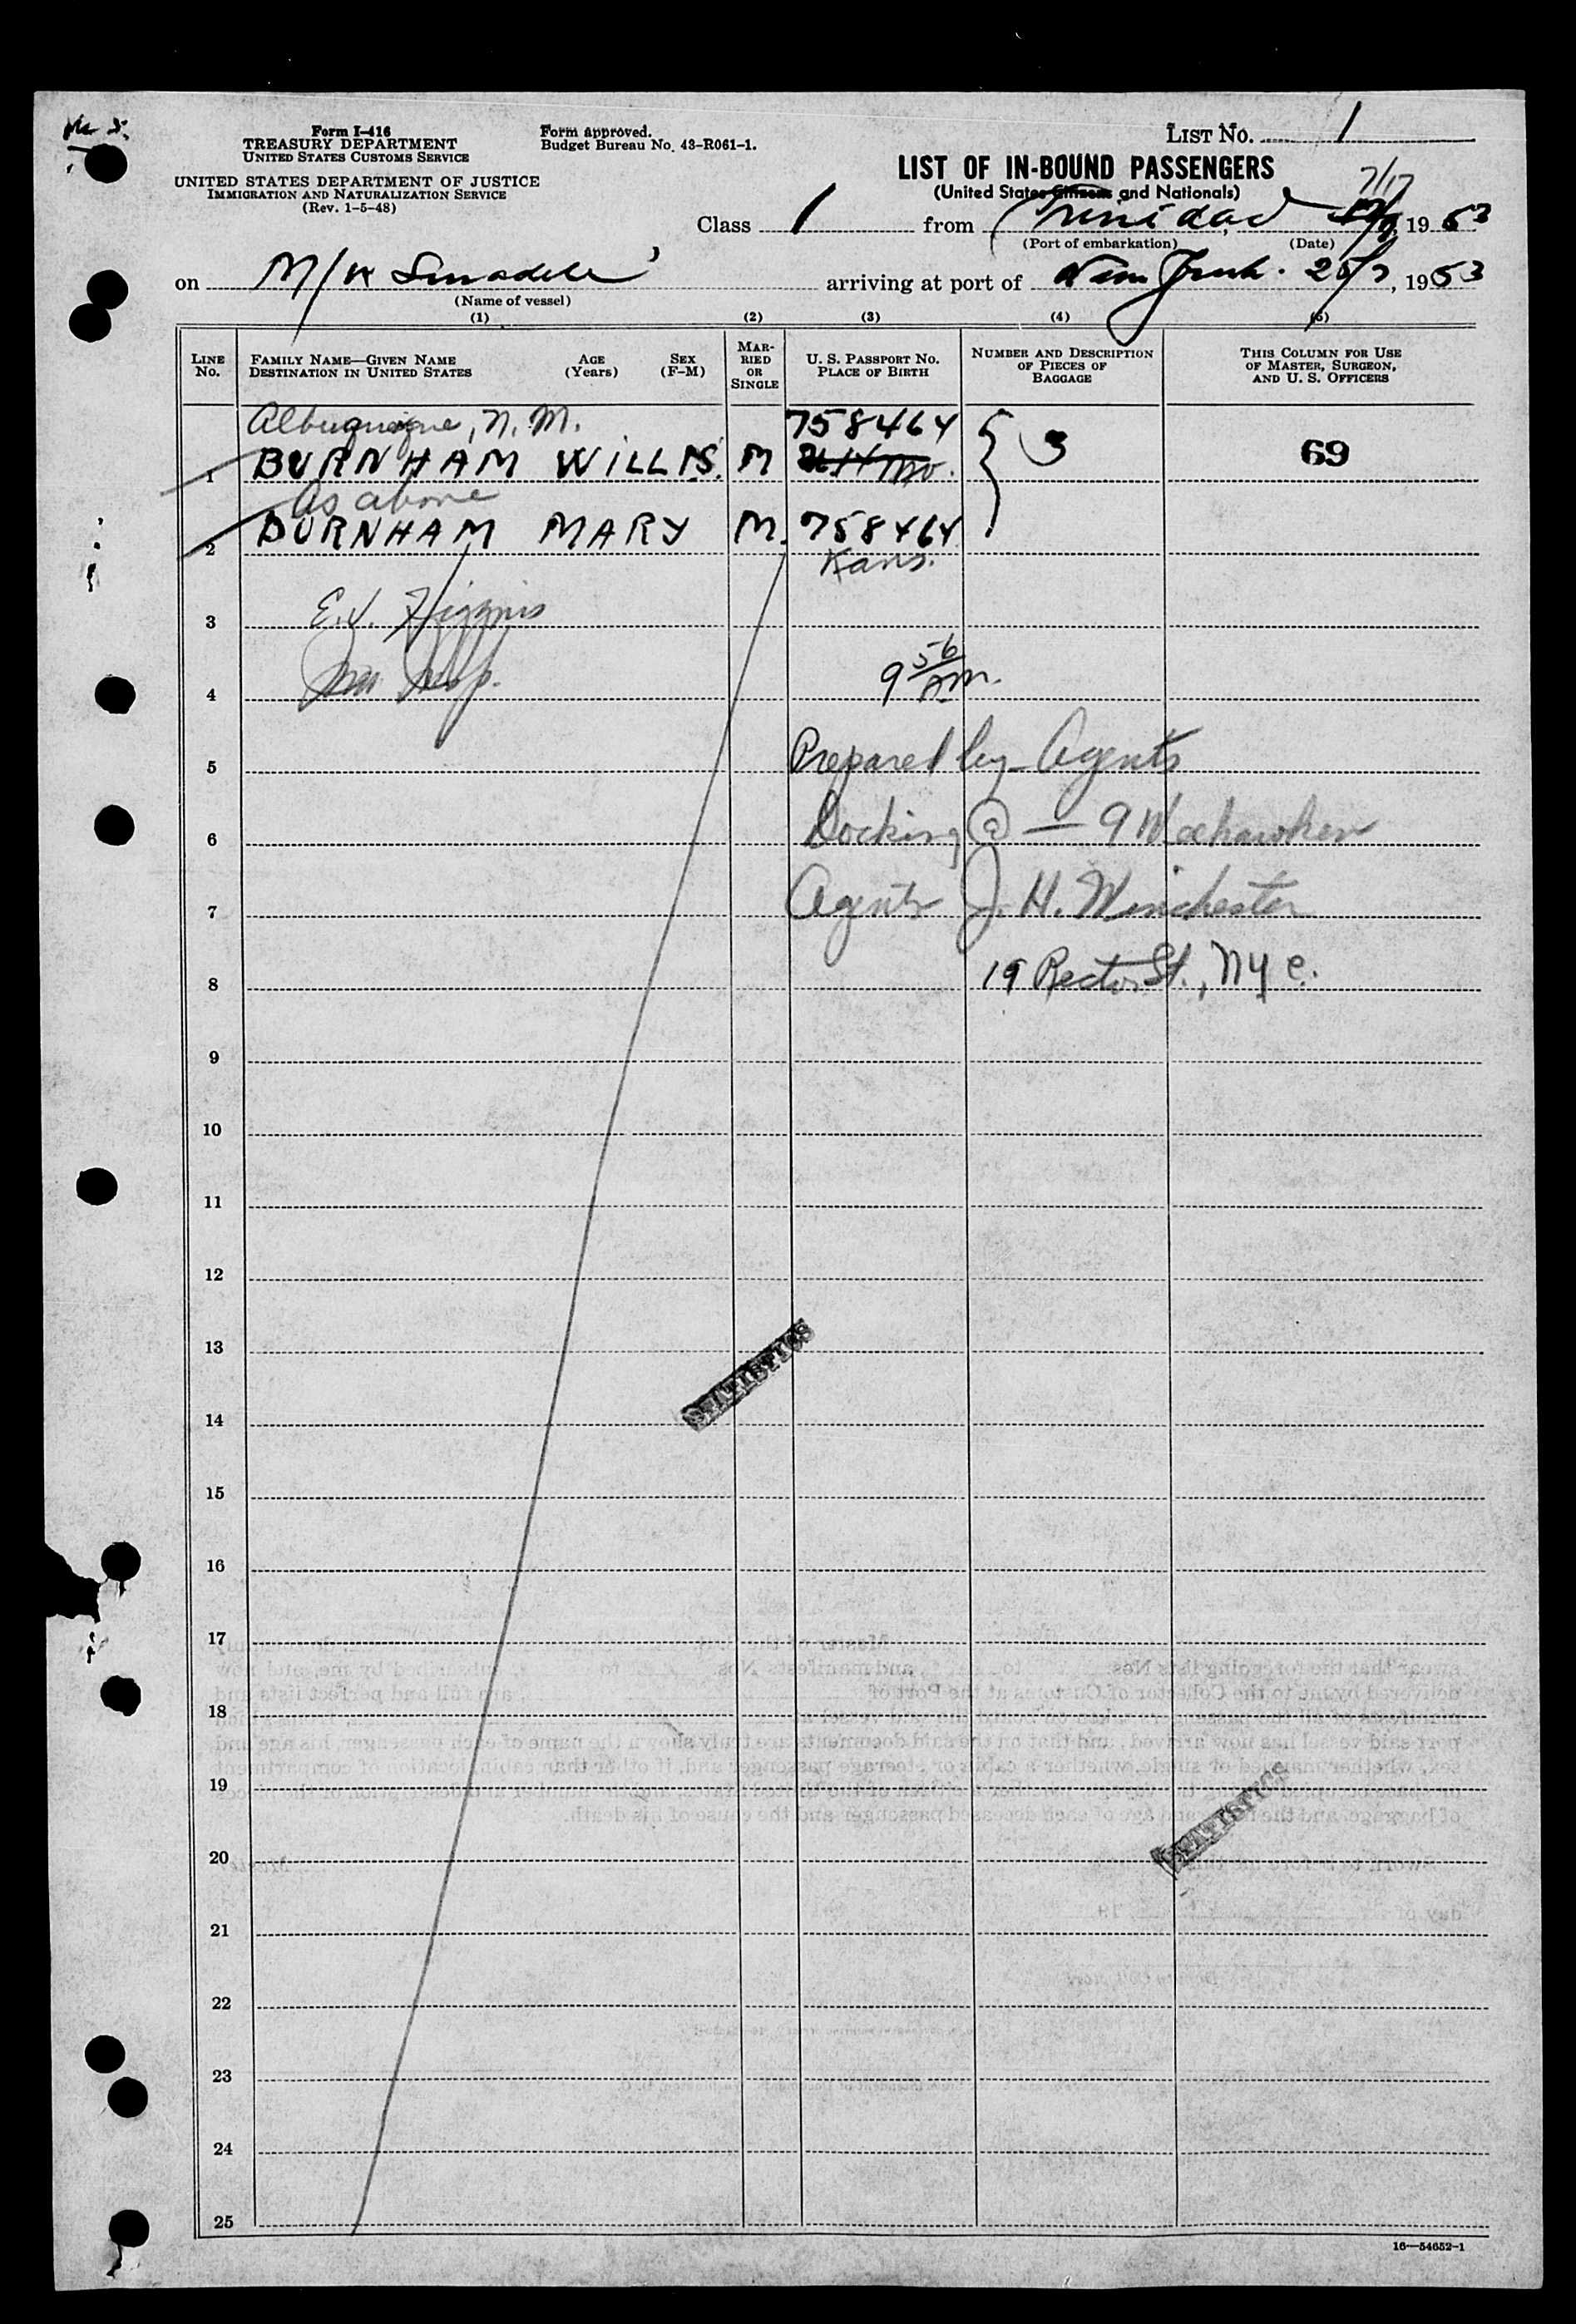 Form I-416
TREASURY DEPARTMENT
UNITED STATES CUSTOMS SERVICE
UNITED STATES DEPARTMENT OF JUSTICE
IMMIGRATION AND NATURALIZATION SERVICE
(Rev. 1-5-48)
Form approved.
Budget Bureau No. 43-R061-1.
LIST NO. 1
LIST OF IN-BOUND PASSENGERS
(United States Citizens and Nationals)
7/17
Class 1 from Trinidad 1953
(Port of embarkation) (Date)
on M/V arriving at port of New York. 25/7, 1953
(Name of vessel)
(1) (2) (3) (4) (5)
LINE No. FAMILY NAME—GIVEN NAME DESTINATION IN UNITED STATES AGE (Years) SEX (F-M) MARRIED OR SINGLE U. S. PASSPORT NO. PLACE OF BIRTH NUMBER AND DESCRIPTION OF PIECES OF BAGGAGE THIS COLUMN FOR USE OF MASTER, SURGEON, AND U. S. OFFICERS
Albuquerque, N. M. 758464
1 BURNHAM WILLIS. M Mo. 3 69
As above
2 BURNHAM MARY M. 758464
Kans.
3 E.J. Higgins
4 Imm Insp. 9 56 AM.
5 Prepared by Agents
6 Docking @ — 9 Weehawken
7 Agents J. H. Winchester
8 19 Rector St., NYC.
9
10
11
12
13
STATISTICS
14
15
16
17
18
19
STATISTICS
20
21
22
23
24
25
16—54652-1